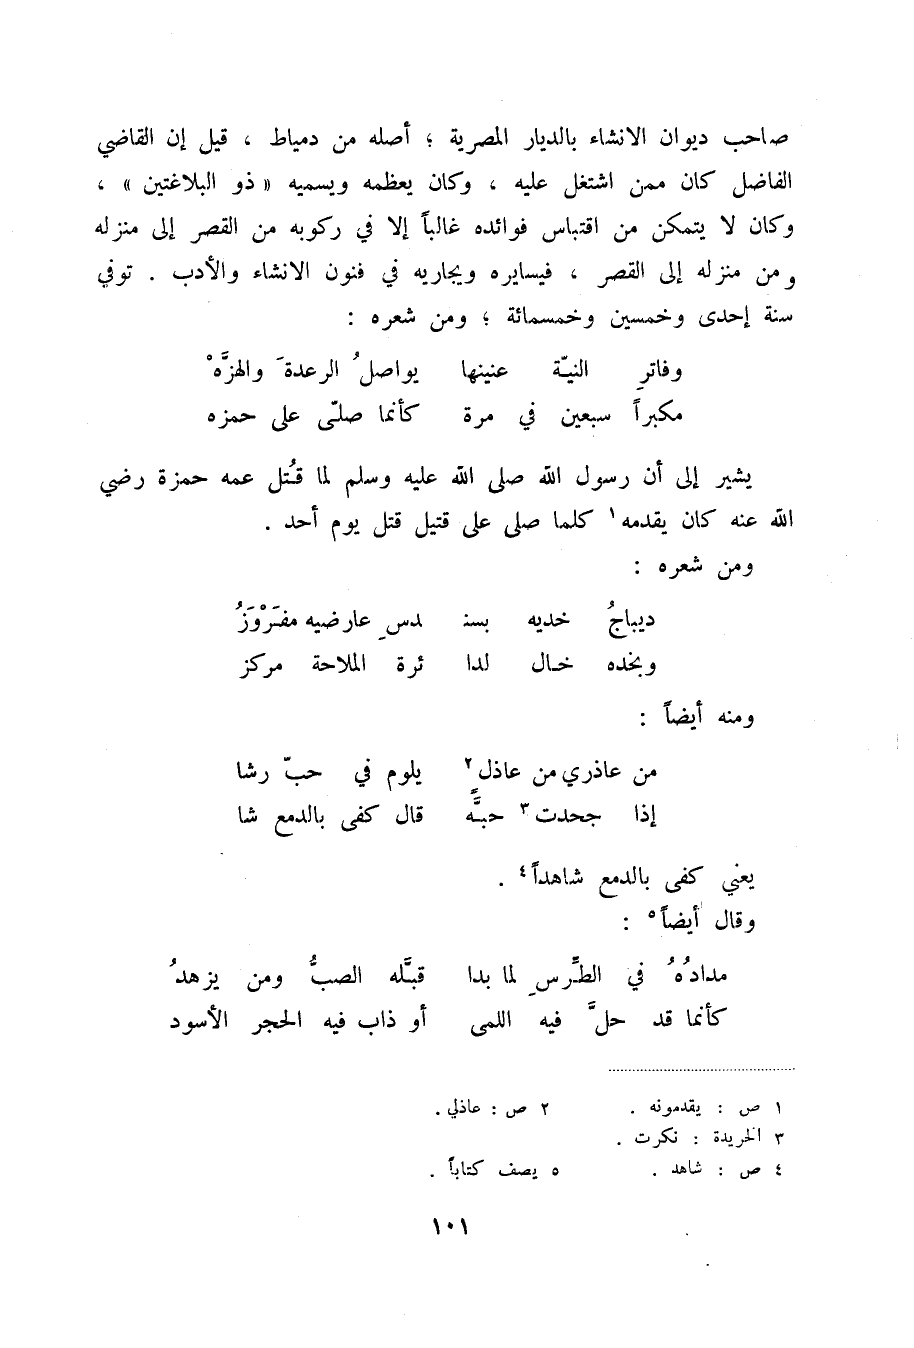 صاحب ديوان الانشاء بالديار المصرية ؛ أصله من دمياط ، قيل إن القاضي
الفاضل كان ممن اشتغل عليه ، وكان يعظمه ويسميه « ذو البلاغتين » ،
وكان لا يتمكن من اقتباس فوائده غالباً إلا في ركوبه من القصر إلى منزله
ومن منزله إلى القصر ، فيسايره ويجاريه في فنون الانشاء والأدب . توفي
سنة إحدى وخمسين وخمسمائة ؛ ومن شعره :
وفاترِ النيّة عنينها يواصلُ الرعدةَ والهزَّهْ
مكبراً سبعين في مرة كأنما صلّى على حمزه
يشير إلى أن رسول الله صلى الله عليه وسلم لما قُتل عمه حمزة رضي
الله عنه كان يقدمه١ كلما صلى على قتيل قتل يوم أحد .
ومن شعره :
ديباجُ خديه بسنـ ـدسِ عارضيه مفَرْوَزُ
وبخده خال لدا ئرة الملاحة مركز
ومنه أيضاً :
من عاذري من عاذل٢ يلوم في حبّ رشا
إذا جحدت٣ حبَّه قال كفى بالدمع شا
يعني كفى بالدمع شاهداً٤ .
وقال أيضاً٥ :
مدادُهُ في الطِّرْسِ لما بدا قبَّله الصبُّ ومن يزهدُ
كأنما قد حلَّ فيه اللمى أو ذاب فيه الحجر الأسود
١ ص : يقدمونه . ٢ ص : عاذلي .
٣ الخريدة : نكرت .
٤ ص : شاهد . ٥ يصف كتاباً .
١٠١